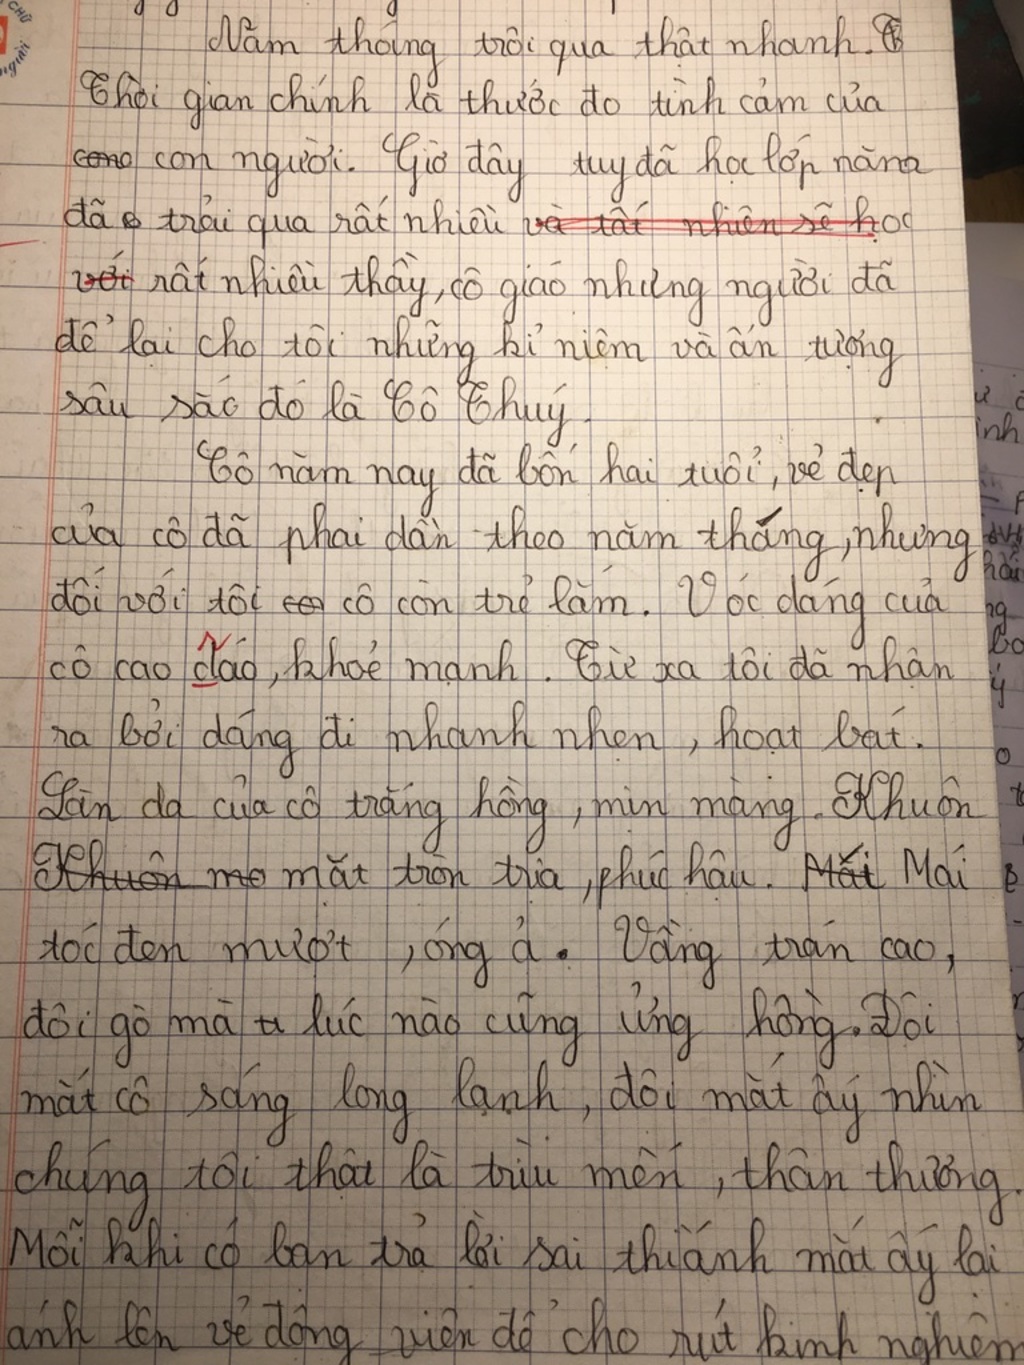 CHỮ
người
Năm tháng trôi qua thật nhanh.
Thời gian chính là thước đo tình cảm của
con người. Giờ đây tuy đã học lớp năm
đã trải qua rất nhiều và tất nhiên sẽ học
với rất nhiều thầy, cô giáo nhưng người đã
để lại cho tôi những kỉ niệm và ấn tượng
sâu sắc đó là Cô Thuý.
Cô năm nay đã bốn hai tuổi, vẻ đẹp
của cô đã phai dần theo năm tháng, nhưng
đối với tôi cô còn trẻ lắm. Vóc dáng của
cô cao dáo, khoẻ mạnh. Từ xa tôi đã nhận
ra bởi dáng đi nhanh nhẹn, hoạt bát.
Làn da của cô trắng hồng, mịn màng. Khuôn
Khuôn mo mặt tròn trịa, phúc hậu. Mắt Mái
tóc đen mượt, óng ả. Vầng trán cao,
đôi gò má lúc nào cũng ửng hồng. Đôi
mắt cô sáng long lanh, đôi mắt ấy nhìn
chúng tôi thật là trìu mến, thân thương.
Mỗi khi có bạn trả lời sai thì ánh mắt ấy lại
ánh lên vẻ động viên để cho rút kinh nghiệm